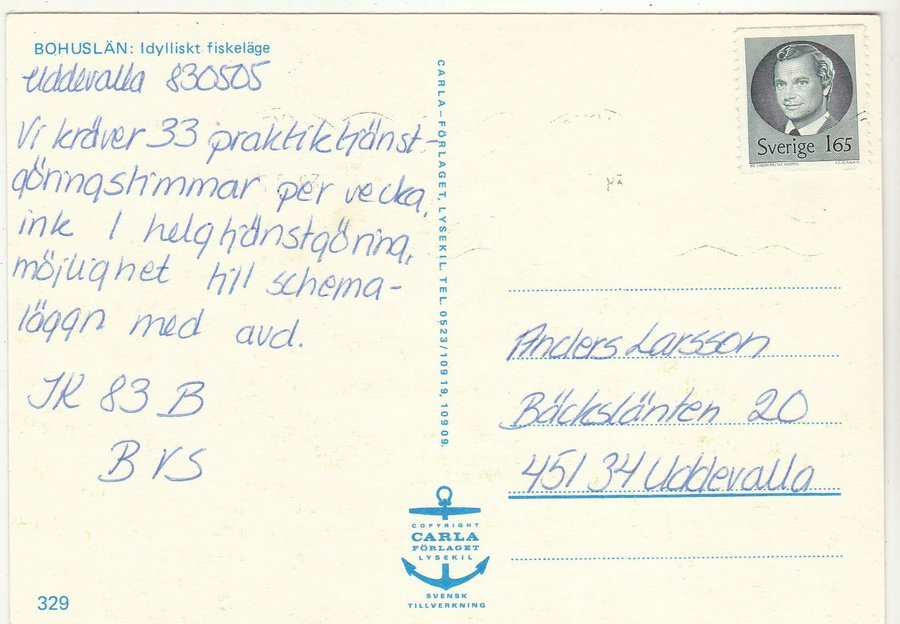 BOHUSLÄN: Idylliskt fiskeläge
Uddevalla 830505
Vi kräver 33 praktiktjänst-
göringstimmar per vecka,
ink 1 helgtjänstgöring,
möjlighet till schema-
läggn med avd.
JK 83 B
BVS
329
CARLA-FÖRLAGET, LYSEKIL. TEL. 0523/109 19, 109 09.
COPYRIGHT
CARLA
FÖRLAGET
LYSEKIL
SVENSK
TILLVERKNING
Sverige 165
Anders Larsson
Bäckslänten 20
451 34 Uddevalla